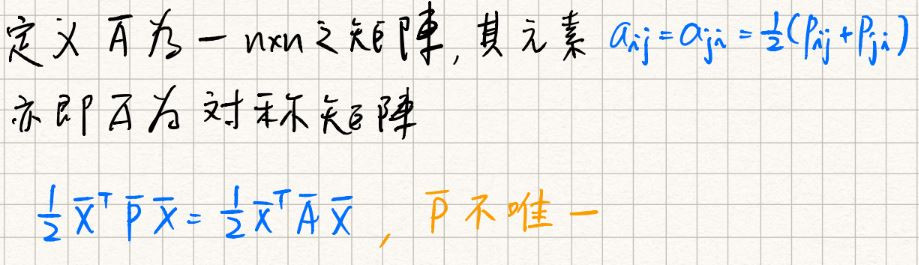 定義 A̅ 為一 n×n 之矩陣, 其元素 aᵢⱼ = aⱼᵢ = ½(Pᵢⱼ + Pⱼᵢ)
亦即 A̅ 為 对称矩陣
½ X̅ᵀ P̅ X̅ = ½ X̅ᵀ A̅ X̅ , P̅ 不唯一